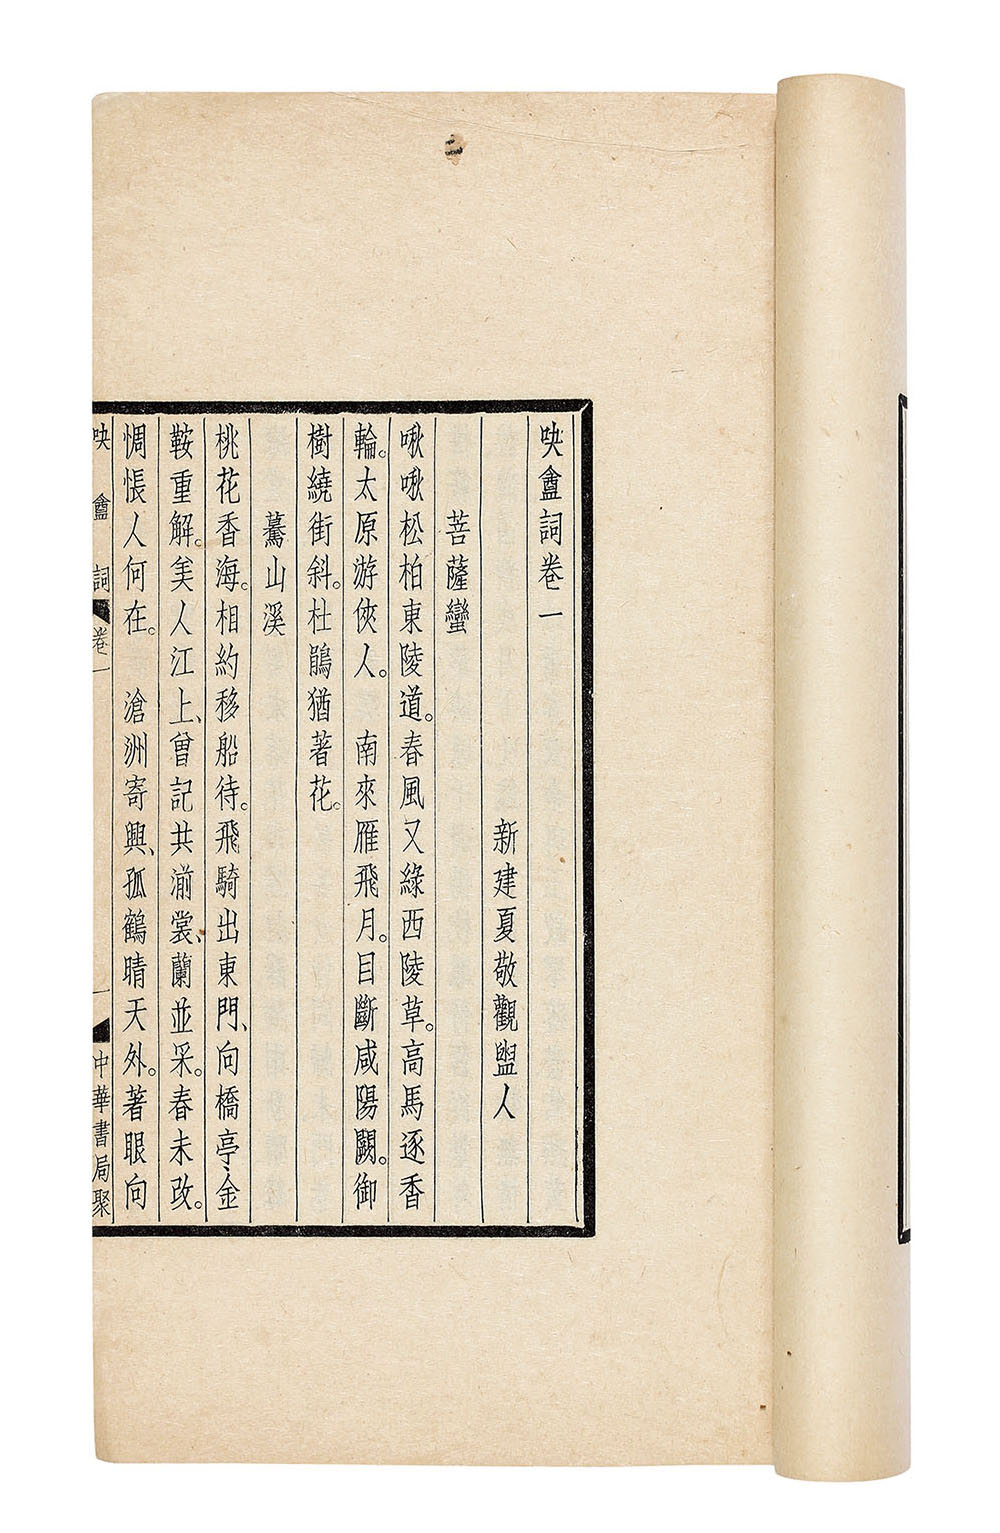 吷盦詞卷一
新建夏敬觀盥人
菩薩蠻
啾啾松柏東陵道。春風又綠西陵草。高馬逐香
輪。太原游俠人。 南來雁飛月。目斷咸陽闕。御
樹繞街斜。杜鵑猶著花。
驀山溪
桃花香海。相約移船待。飛騎出東門、向橋亭、金
鞍重解。美人江上、曾記共湔裳、蘭並采。春未改。
惆悵人何在。 滄洲寄興、孤鶴晴天外。著眼向
吷盦詞 卷一 一 中華書局聚